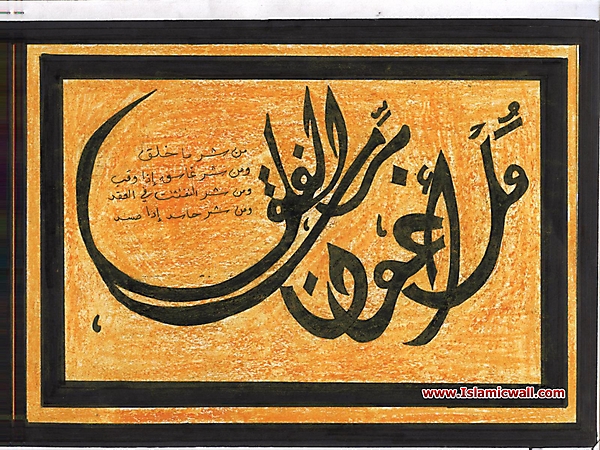 قل أعوذ برب الفلق
من شر ما خلق
ومن شر غاسق إذا وقب
ومن شر النفثت في العقد
ومن شر حاسد إذا حسد
www.Islamicwall.com